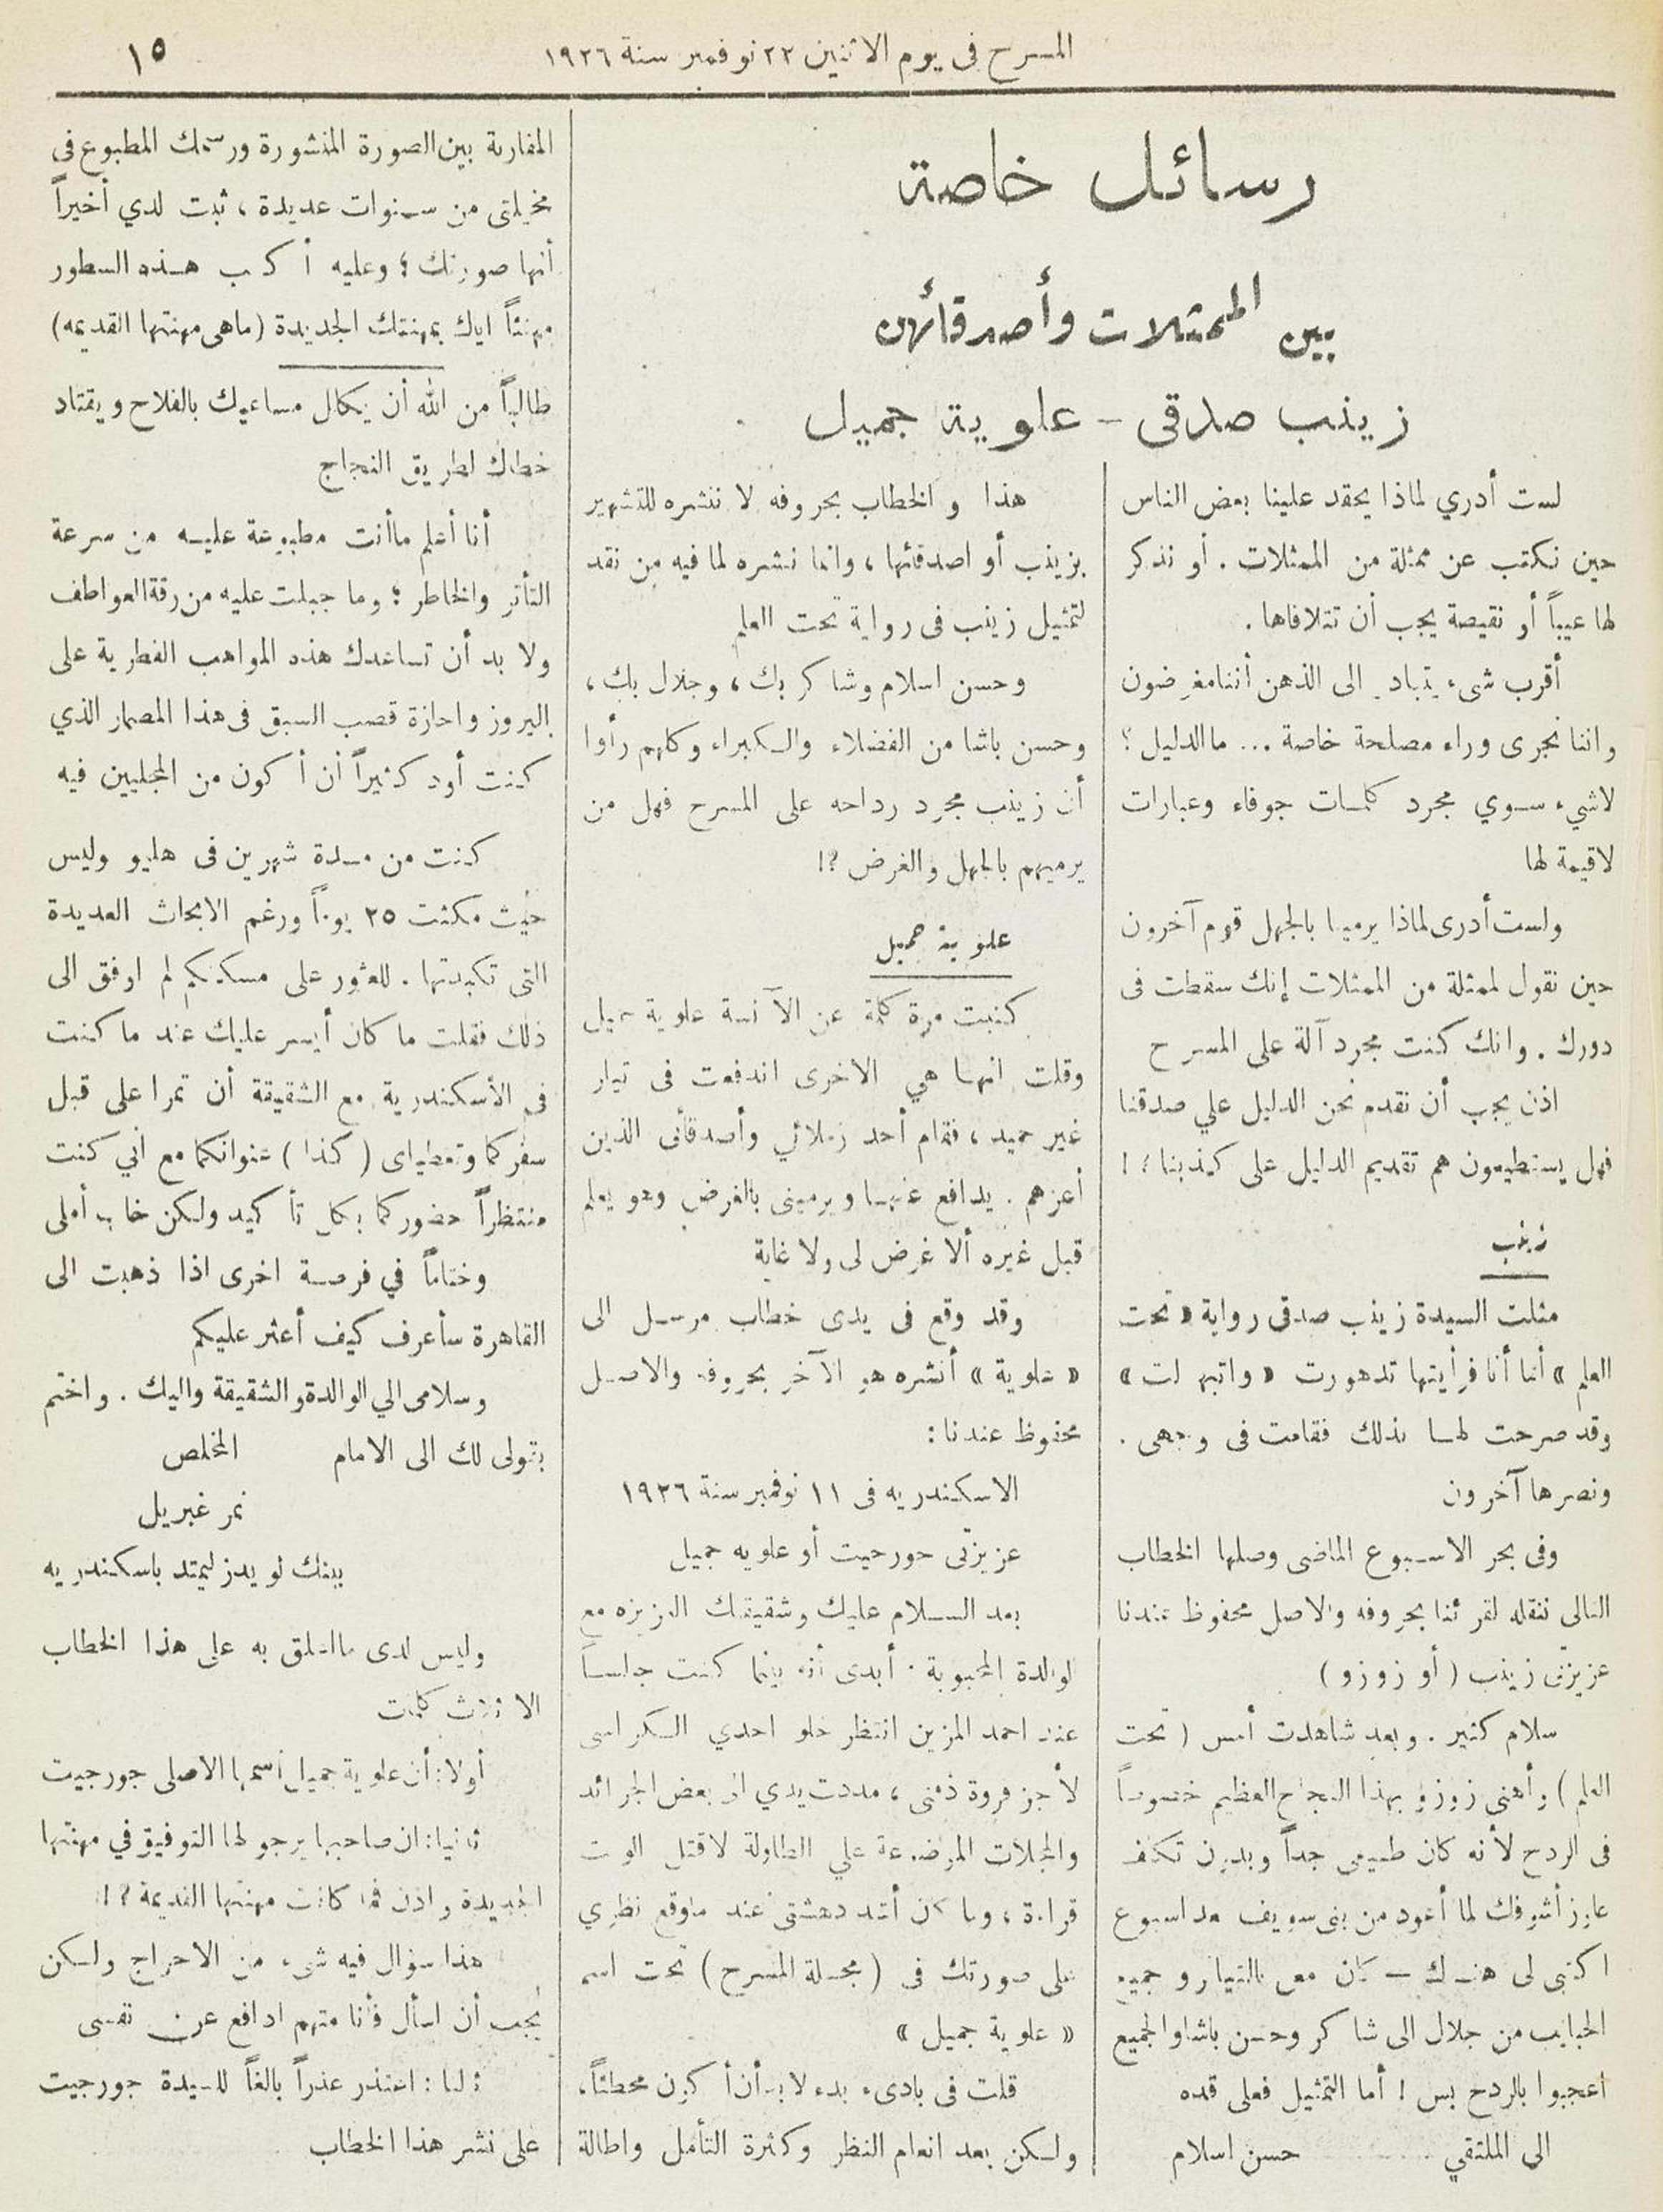 المسرح فى يوم الاثنين ٢٢ نوفمبر سنة ١٩٢٦
١٥
رسائل خاصة
بين الممثلات وأصدقائهن
زينب صدقى – علوية جميل
لست أدري لماذا يحقد علينا بعض الناس
حين نكتب عن ممثلة من الممثلات . أو نذكر
لها عيباً أو نقيصة يجب أن تتلافاها .
أقرب شىء يتبادر الى الذهن أننا مغرضون
واننا نجرى وراء مصلحة خاصة ... ما الدليل ؟
لاشيء سوي مجرد كلمات جوفاء وعبارات
لاقيمة لها
ولست أدرى لماذا يرمينا بالجهل قوم آخرون
حين نقول لممثلة من الممثلات إنك سقطت فى
دورك . وانك كنت مجرد آلة على المسرح
اذن يجب أن نقدم نحن الدليل علي صدقنا
فهل يستطيعون هم تقديم الدليل على كيذبنا ؟ !
زينب
مثلت السيدة زينب صدقى رواية « تحت
العلم » أنا أنا فرأيتها تدهورت « واتبهدلت »
وقد صرحت لها بذلك فقامت فى وجهى .
ونصرها آخرون
وفى بحر الاسبوع الماضى وصلها الخطاب
التالى ننقله لقرائنا بحروفه والاصل محفوظ عندنا
عزيزتى زينب ( أو زوزو )
سلام كتير . وبعد شاهدت أمس ( تحت
العلم ) وأهنى زوزو بهذا النجاح العظيم خصوصاً
فى الردح لأنه كان طبيعى جداً وبدون تكلف
عاوز أشوفك لما أعود من بنى سويف بعد اسبوع
اكتبى لى هناك – كان معى بالتياترو جميع
الحبايب من جلال الى شاكر وحسن باشا والجميع
اعجبوا بالردح بس ! أما التمثيل فعلى قده
الى الملتقي حسن اسلام
هذا والخطاب بحروفه لا ننشره للتشهير
بزينب أو اصدقائها ، وانما نشره لما فيه من نقد
لتمثيل زينب فى رواية تحت العلم
وحسن اسلام وشاكر بك ، وجلال بك ،
وحسن باشا من الفضلاء والكبراء وكلهم رأوا
أن زينب مجرد رداحه على المسرح فهل من
يرميهم بالجهل والغرض ؟!
علوية جميل
كتبت مرة كلمة عن الآنسة علوية جميل
وقلت انها هي الاخرى اندفعت فى تيار
غير حميد ، فقام أحد زملائي وأصدقائى الذين
أعزهم . يدافع عنها ويرمينى بالغرض وهو يعلم
قبل غيره ألا غرض لى ولا غاية
وقد وقع فى يدى خطاب مرسل الى
« علوية » أنشره هو الآخر بحروفه والاصل
محفوظ عندنا :
الاسكندريه فى ١١ نوفمبر سنة ١٩٢٦
عزيزتى جورجيت أو علويه جميل
بعد السلام عليك وشقيقتك العزيزه مع
لوالدة المحبوبة . أبدى أنه بينما كنت جالساً
عند احمد المزين انتظر خلو احدي الكراسى
لأجز فروة ذقنى ، مددت يدي الى بعض الجرائد
والمجلات الموضوعة علي الطاولة لاقتل الوقت
قراءة ، وما كان أشد دهشتى عند ماوقع نظري
على صورتك فى ( مجلة المسرح ) تحت اسم
« علوية جميل »
قلت فى بادىء بدء لابد أن أكون مخطئاً ،
ولكن بعد انعام النظر وكثرة التأمل واطالة
المقارنة بين الصورة المنشورة ورسمك المطبوع فى
مخيلتى من سنوات عديدة ، ثبت لدي أخيراً
أنها صورتك ؛ وعليه أكتب هذه السطور
مهنئاً اياك بمهنتك الجديدة ( ماهى مهنتها القديمه )
طالباً من الله أن يكلل مساعيك بالفلاح ويقتاد
خطاك لطريق النجاج
أنا أعلم ماأنت مطبوعة عليه من سرعة
التأثر والخاطر ؛ وما جبلت عليه من رقة العواطف
ولا بد أن تساعدك هذه المواهب الفطرية على
البروز واحازة قصب السبق فى هذا المضمار الذي
كنت أود كثيراً أن أكون من المجليين فيه
كنت من مدة شهرين فى هليو وليس
حيث مكثت ٢٥ يوماً ورغم الابحاث العديدة
التى تكبدتها . للعثور على مسكنكم لم اوفق الى
ذلك فقلت ما كان أيسر عليك عند ما كنت
فى الأسكندرية مع الشقيقة أن تمرا على قبل
سفركما وتعطياى ( كذا ) عنوانكما مع انى كنت
منتظراً حضوركما بكل تأكيد ولكن خاب أملى
وختاماً في فرصة اخرى اذا ذهبت الى
القاهرة سأعرف كيف أعثر عليكم
وسلامى الي الوالدة والشقيقة واليك . واختم
بقولى لك الى الامام المخلص
نمر غبريل
ببنك لويدز ليمتد باسكندريه
وليس لدى مااعلق به على هذا الخطاب
الا ثلاث كلمات
أولا : أن علوية جميل أسمها الاصلى جورجيت
ثانيا : ان صاحبها يرجو لها التوفيق في مهنتها
الجديدة واذن فما كانت مهنتها القديمة ؟ !!
هذا سؤال فيه شىء من الاحراج ولكن
يجب أن اسأل فأنا متهم ادافع عن نفسى
ثالثا : اعتذر عذراً بالغاً للسيدة جورجيت
على نشر هذا الخطاب